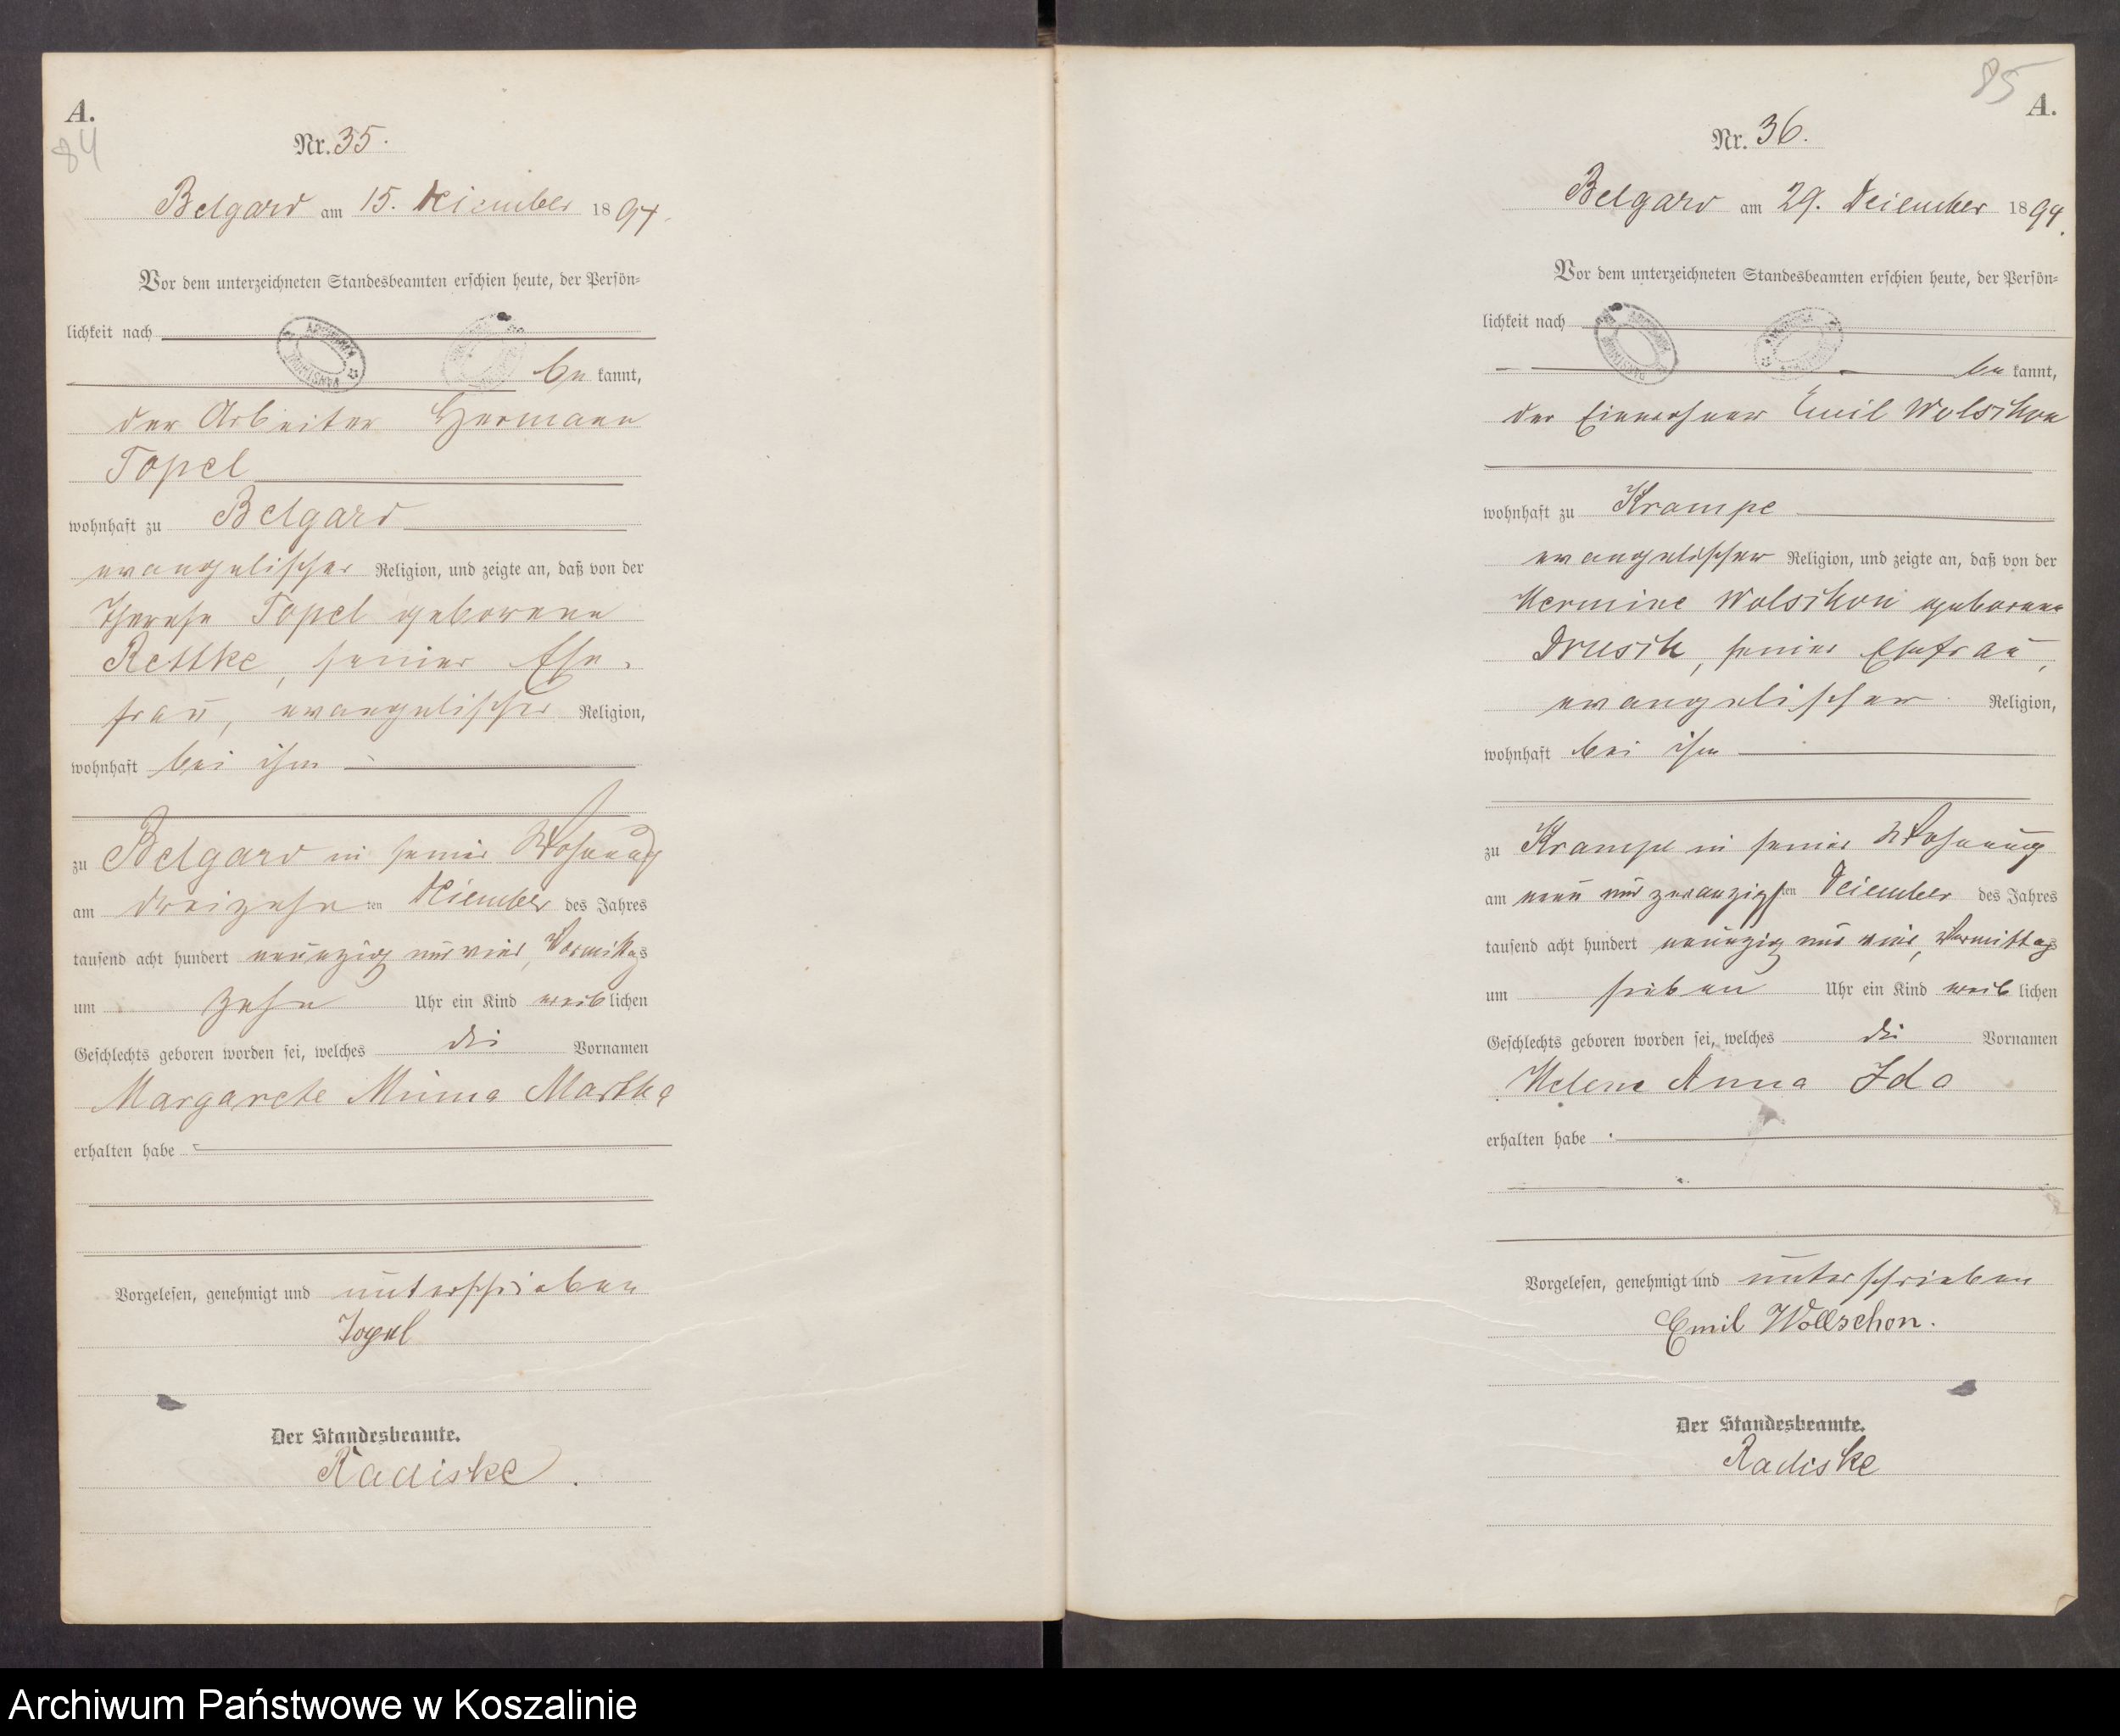 A.
84
Nr. 35.
Belgard am 15. Dezember 1894.
Vor dem unterzeichneten Standesbeamten erschien heute, der Persön-
lichkeit nach
be kannt,
der Arbeiter Hermann
Topel
wohnhaft zu Belgard
evangelischer Religion, und zeigte an, daß von der
Therese Topel geborene
Rettke, seiner Ehe-
frau, evangelischer Religion,
wohnhaft bei ihm
zu Belgard in seiner Wohnung
am dreizehn ten Dezember des Jahres
tausend acht hundert neunzig und vier, Vormittags
um zehn Uhr ein Kind weib lichen
Geschlechts geboren worden sei, welches die Vornamen
Margarete Minna Martha
erhalten habe
Vorgelesen, genehmigt und unterschrieben
Topel
Der Standesbeamte.
Radiske.
85
A.
Nr. 36.
Belgard am 29. Dezember 1894.
Vor dem unterzeichneten Standesbeamten erschien heute, der Persön-
lichkeit nach
be kannt,
der Einwohner Emil Wolschon
wohnhaft zu Krampe
evangelischer Religion, und zeigte an, daß von der
Hermine Wolschon geborene
Drusch, seiner Ehefrau,
evangelischer Religion,
wohnhaft bei ihm
zu Krampe in seiner Wohnung
am neun und zwanzigsten Dezember des Jahres
tausend acht hundert neunzig und vier, Vormittags
um sieben Uhr ein Kind weib lichen
Geschlechts geboren worden sei, welches die Vornamen
Helene Anna Ida
erhalten habe
Vorgelesen, genehmigt und unterschrieben
Emil Wollschon.
Der Standesbeamte.
Radiske
Archiwum Państwowe w Koszalinie